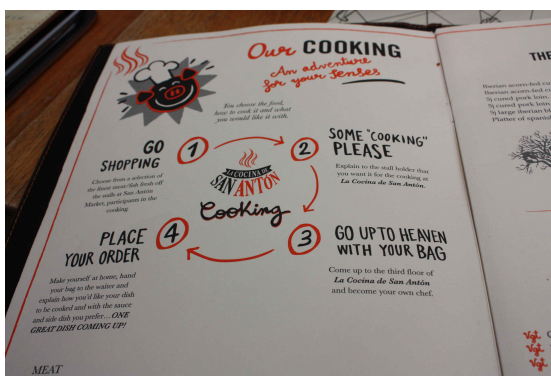 Our COOKING
An adventure
for your senses
You choose the food,
how to cook it and what
you would like it with.
GO
SHOPPING
Choose from a selection of
the finest meat/fish fresh off
the stalls at San Antón
Market, participants in the
cooking.
1
2
SOME "COOKING"
PLEASE
Explain to the stall holder that
you want it for the cooking at
La Cocina de San Antón.
LA COCINA DE
SAN ANTÓN
Cooking
3
GO UP TO HEAVEN
WITH YOUR BAG
Come up to the third floor of
La Cocina de San Antón
and become your own chef.
4
PLACE
YOUR ORDER
Make yourself at home, hand
your bag to the waiter and
explain how you'd like your dish
to be cooked and with the sauce
and side dish you prefer...ONE
GREAT DISH COMING UP!
MEAT
THE
Iberian acorn-fed
Iberian acorn-fed
5j cured pork loin.
5j cured pork loin
5j large iberian
Platter of spanish
Vgt
Vgt
Vgt